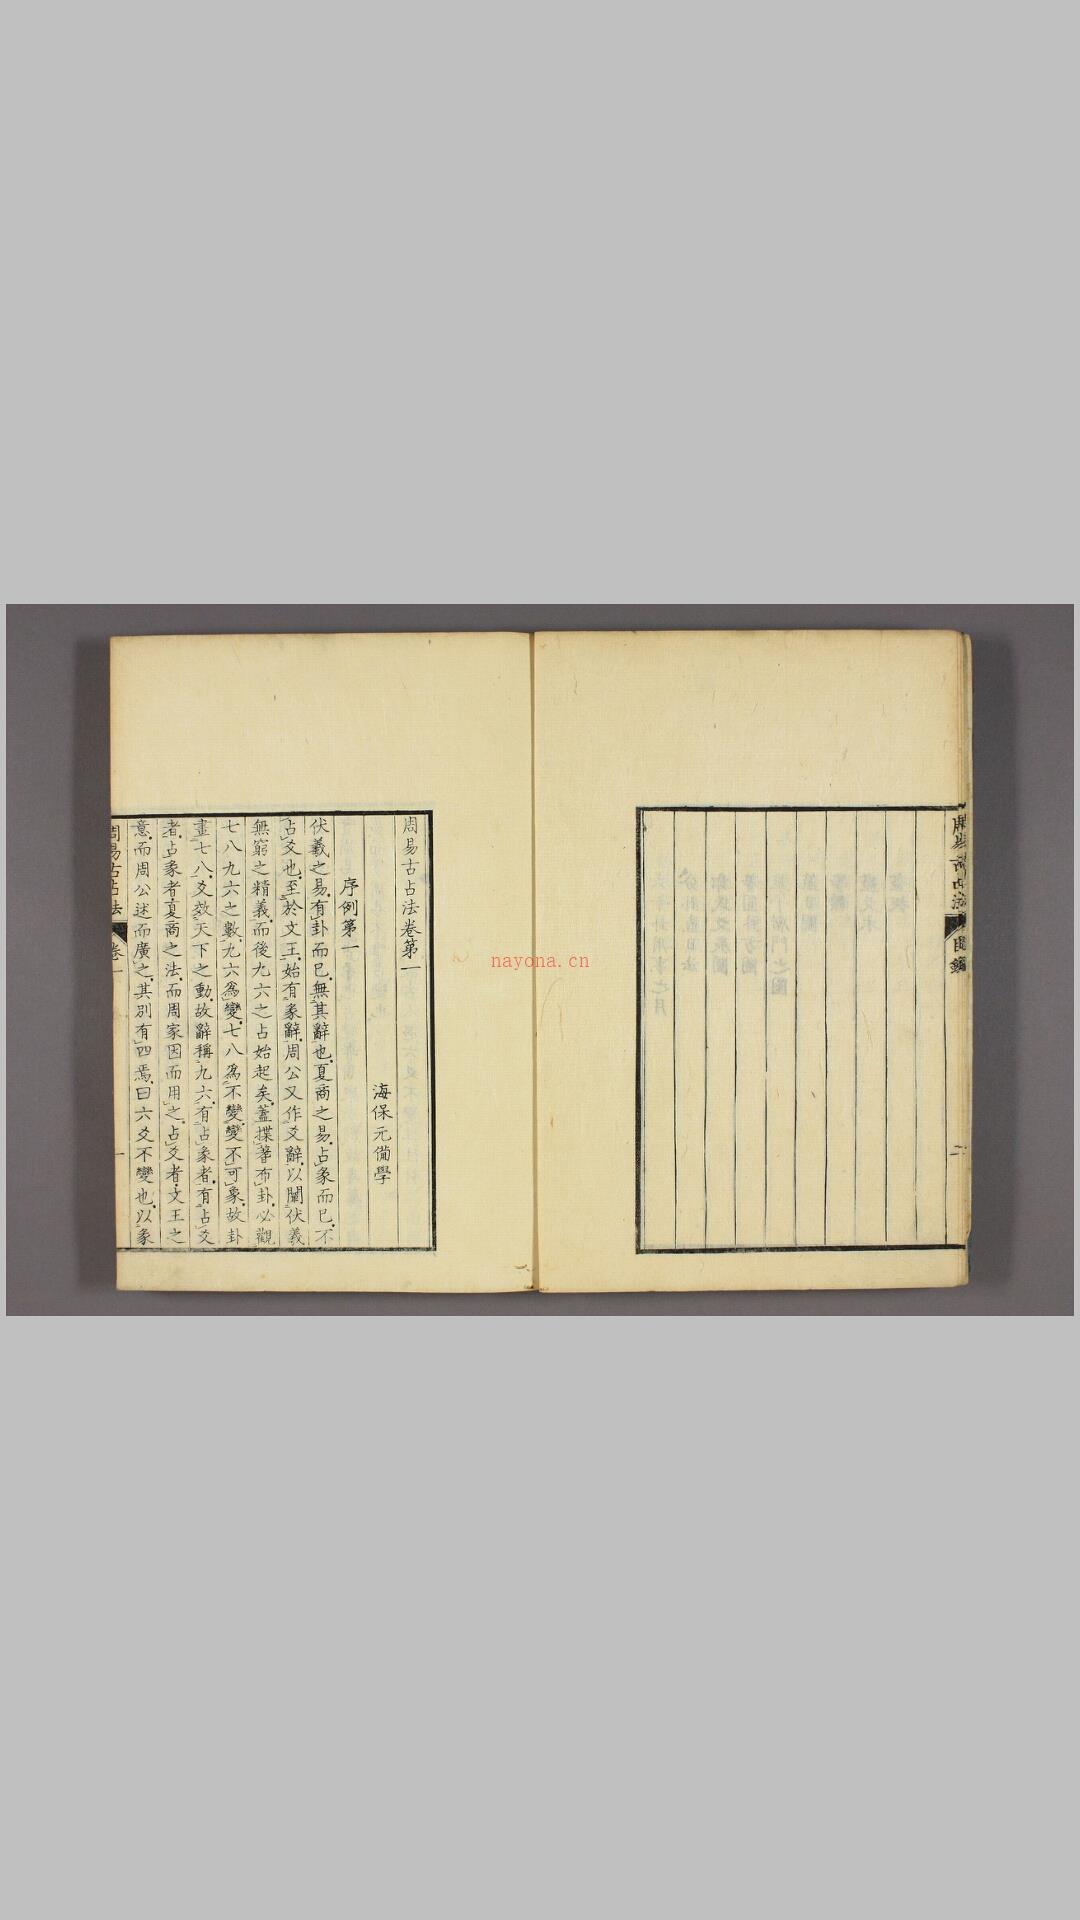 周易古占法 目録
二
周易古占法卷第一
海保元備學
序例第一
伏羲之易有卦而已無其辭也夏商之易占彖而已不
占爻也至於文王始有彖辭周公又作爻辭以闡伏羲
無窮之精義而後九六之占始起矣蓋揲蓍布卦必觀
七八九六之數九六為變七八為不變變不可象故卦
畫七八爻效天下之動故辭稱九六有占彖者有占爻
者占彖者夏商之法而周家因而用之占爻者文王之
意而周公述而廣之其別有四焉曰六爻不變也以彖
周易古占法 卷一
一
nayona.cn